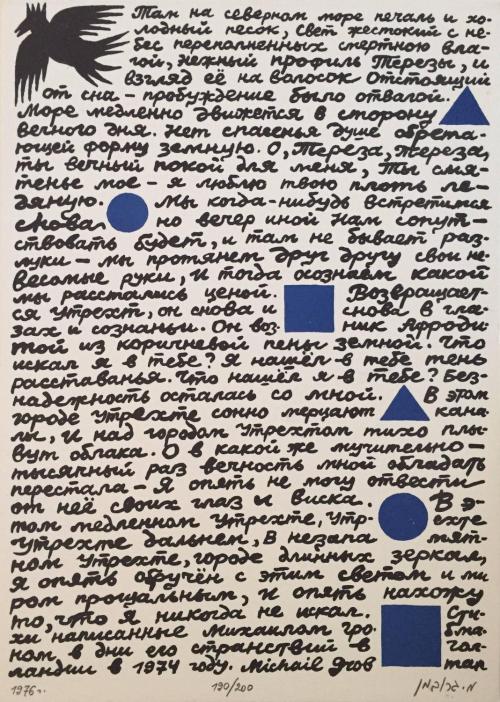 Там на северном море печаль и хо-
лодный песок, Свет жестокий с не-
бес переполненных смертною вла-
гой, Нежный профиль Терезы, и
взгляд её на волосок Отстоящий
от сна - пробуждение было отвагой.
Море медленно движется в сторону
вечного дня. Нет спасенья душе обрета-
ющей форму земную. О, Тереза, Тереза,
ты вечный покой для меня, Ты смя-
тенье мое - я люблю твою плоть ле-
дяную. Мы когда-нибудь встретимся
снова но вечер иной нам сопут-
ствовать будет, и там не бывает раз-
луки - мы протянем друг другу свои не-
весомые руки, И тогда осознаем какой
мы расстались ценой. Возвращает-
ся Утрехт, он снова и снова в гла-
зах и сознаньи. Он воз- ник Афроди-
той из коричневой пены земной. Что
искал я в тебе? Я нашёл в тебе тень
расставанья. Что нашёл я в тебе? Без-
надежность осталась со мной. В этом
городе Утрехте сонно мерцают кана-
лы, И над городом Утрехтом тихо плы-
вут облака. О в какой же мучительно-
тысячный раз вечность мной обладать
перестала - Я опять не могу отвести
от неё своих глаз и виска. В э-
том медленном Утрехте, Утр- ехте
Утрехте дальнем, В незапа мят-
ном Утрехте, городе длинных зеркал,
я опять обручён с этим светом и ми
ром прощальным, И опять нахожу
то, что я никогда не искал. Сти-
хи написанные Михаилом Гро- бма-
ном, в дни его странствий в Гол-
ландии в 1974 году. Michail Grob man
1976 г. 190/200 מ. גרובמן